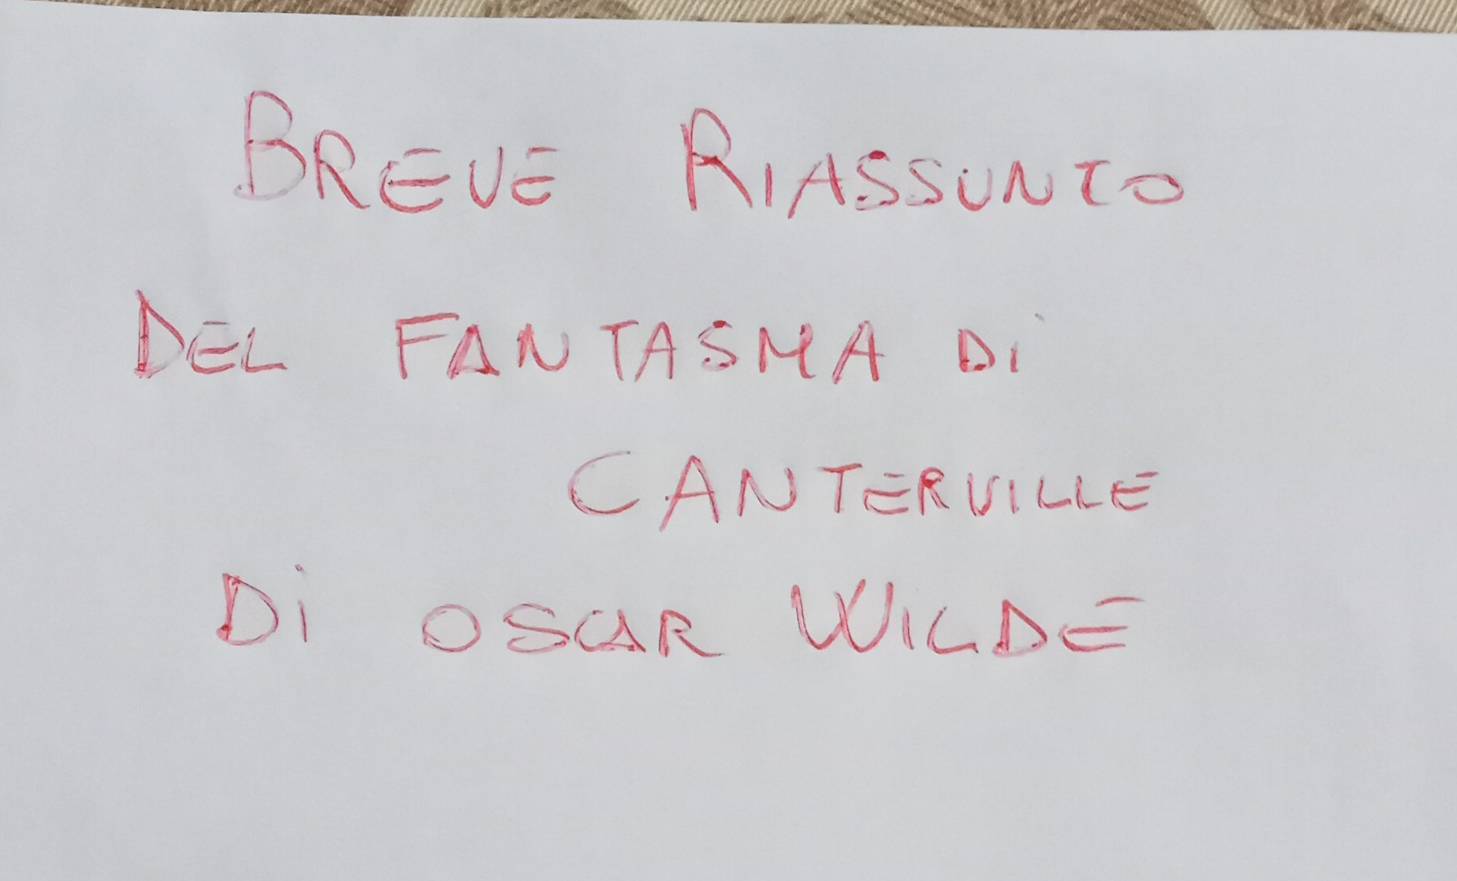 BREVE RIASSUNTO
DEL FANTASMA Di
CANTERVILLE
Di OSCAR WILDE